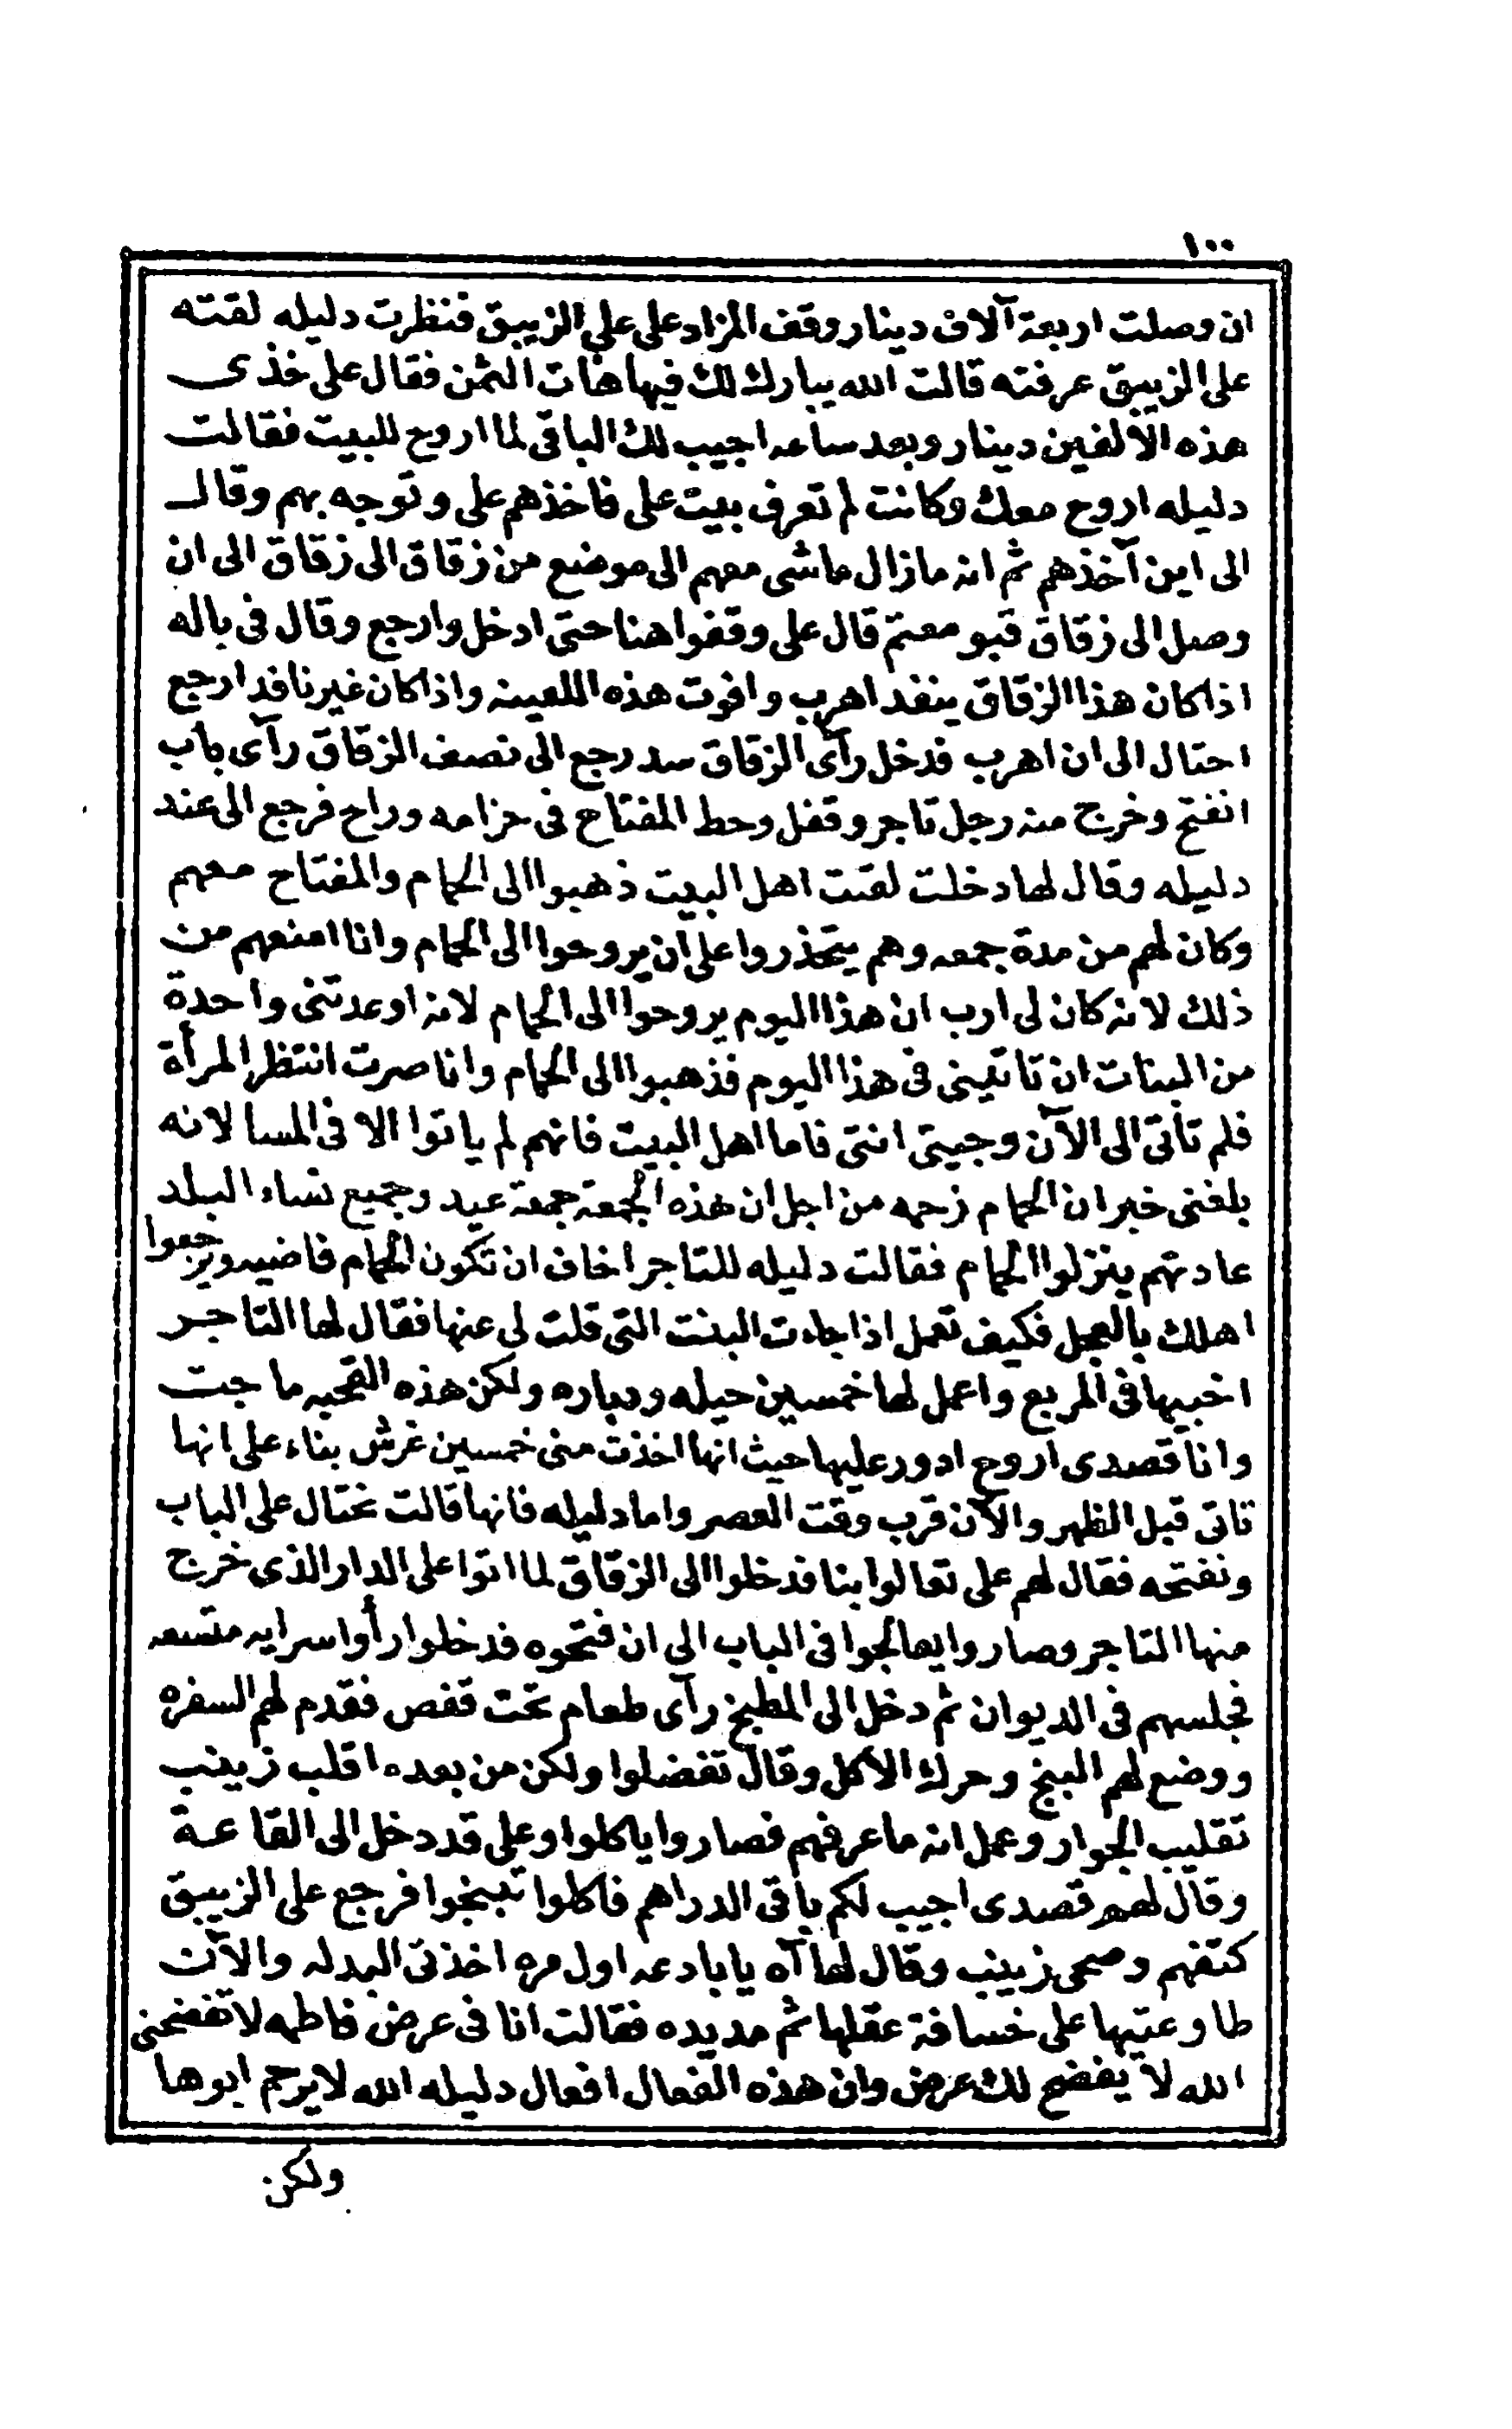 ١٠٠
ان وصلت اربعة آلاف دينار وقف المزاد على علي الزيبق فنظرت دليله لقته
على الزيبق عرفته قالت الله يبارك لك فيها هات الثمن فقال على خذى
هذه الالفين دينار وبعد ساعه اجيب لك الباقى لما اروح للبيت فقالت
دليله اروح معك وكانت لم تعرف بيت على فاخذهم على وتوجه بهم وقال
الى اين آخذهم ثم انه مازال ماشى معهم الى موضع من زقاق الى زقاق الى ان
وصل الى زقاق قبو معتم قال على وقفوا هنا حتى ادخل وارجع وقال فى باله
اذا كان هذا الزقاق ينفد اهرب وافوت هذه اللعينه واذا كان غير نافد ارجع
احتال الى ان اهرب فدخل رآى الزقاق سد رجع الى نصف الزقاق رآى باب
انفتح وخرج منه رجل تاجر وقفل وحط المفتاح فى حزامه وراح فرجع الى عند
دليله وقال لها دخلت لقيت اهل البيت ذهبوا الى الحمام والمفتاح معهم
وكان لهم من مدة جمعه وهم يتحذروا على ان يروحوا الى الحمام وانا امنعهم من
ذلك لانه كان لى ارب ان هذا اليوم يروحوا الى الحمام لانه اوعدتنى واحدة
من البنات ان تاتينى فى هذا اليوم فذهبوا الى الحمام وانا صرت انتظر المرأة
فلم تأتى الى الآن وجيتى انتى فاما اهل البيت فانهم لم ياتوا الا فى المسا لانه
بلغنى خبر ان الحمام زحمه من اجل ان هذه الجمعة جمعة عيد وجميع نساء البلد
عادتهم ينزلوا الحمام فقالت دليله للتاجر اخاف ان تكون الحمام فاضيه ويرجعوا
اهلك بالعجل فكيف تعمل اذا جاءت البنت التى قلت لى عنها فقال لها التاجر
اخبيها فى المربع واعمل لها خمسين حيله ودباره ولكن هذه القحبه ما جت
وانا قصدى اروح ادور عليها حيث انها اخذت منى خمسين غرش بناء على انها
تاتى قبل الظهر والآن قرب وقت العصر واما دليله فانها قالت نحتال على الباب
ونفتحه فقال لهم على تعالوا بنا فدخلوا الى الزقاق لما اتوا على الدار الذى خرج
منها التاجر وصاروا يعالجوا فى الباب الى ان فتحوه فدخلوا رأوا سرايه متسعه
فجلسهم فى الديوان ثم دخل الى المطبخ رآى طعام تحت قفص فقدم لهم السفره
ووضع لهم البنج وحرك الاكل وقال تفضلوا ولكن من بعده اقلب زينب
تقليب الجوار وعمل انه ما عرفهم فصاروا ياكلوا وعلى قد دخل الى القاعة
وقال لهم قصدى اجيب لكم باقى الدراهم فاكلوا تبنجوا فرجع على الزيبق
كتفهم وصحى زينب وقال لها آه يا بادعه اول مره اخذتى البدله والآن
طاوعتيها على خسافة عقلها ثم مد يده فقالت انا فى عرض فاطمه لا تفضحنى
الله لا يفضح لك عرض وان هذه الفعال افعال دليله الله لا يرحم ابوها
ولكن